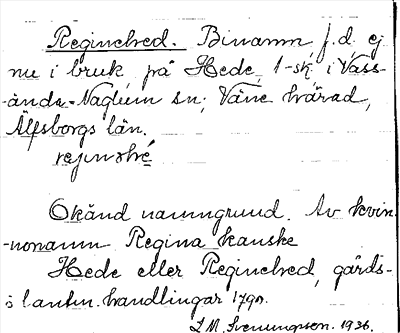 Reginelred. Binamn, f.d. ej
nu i bruk, på Hede, 1-sk, i Väss-
ända-Naglum sn; Väne härad,
Älfsborgs län.
rejınəlré
Okänd namngrund. Av kvin-
-nonamn Regina kanske
Hede eller Reginelred, gårds-
i lantm. handlingar 1790.
L M. Svenungson. 1936.